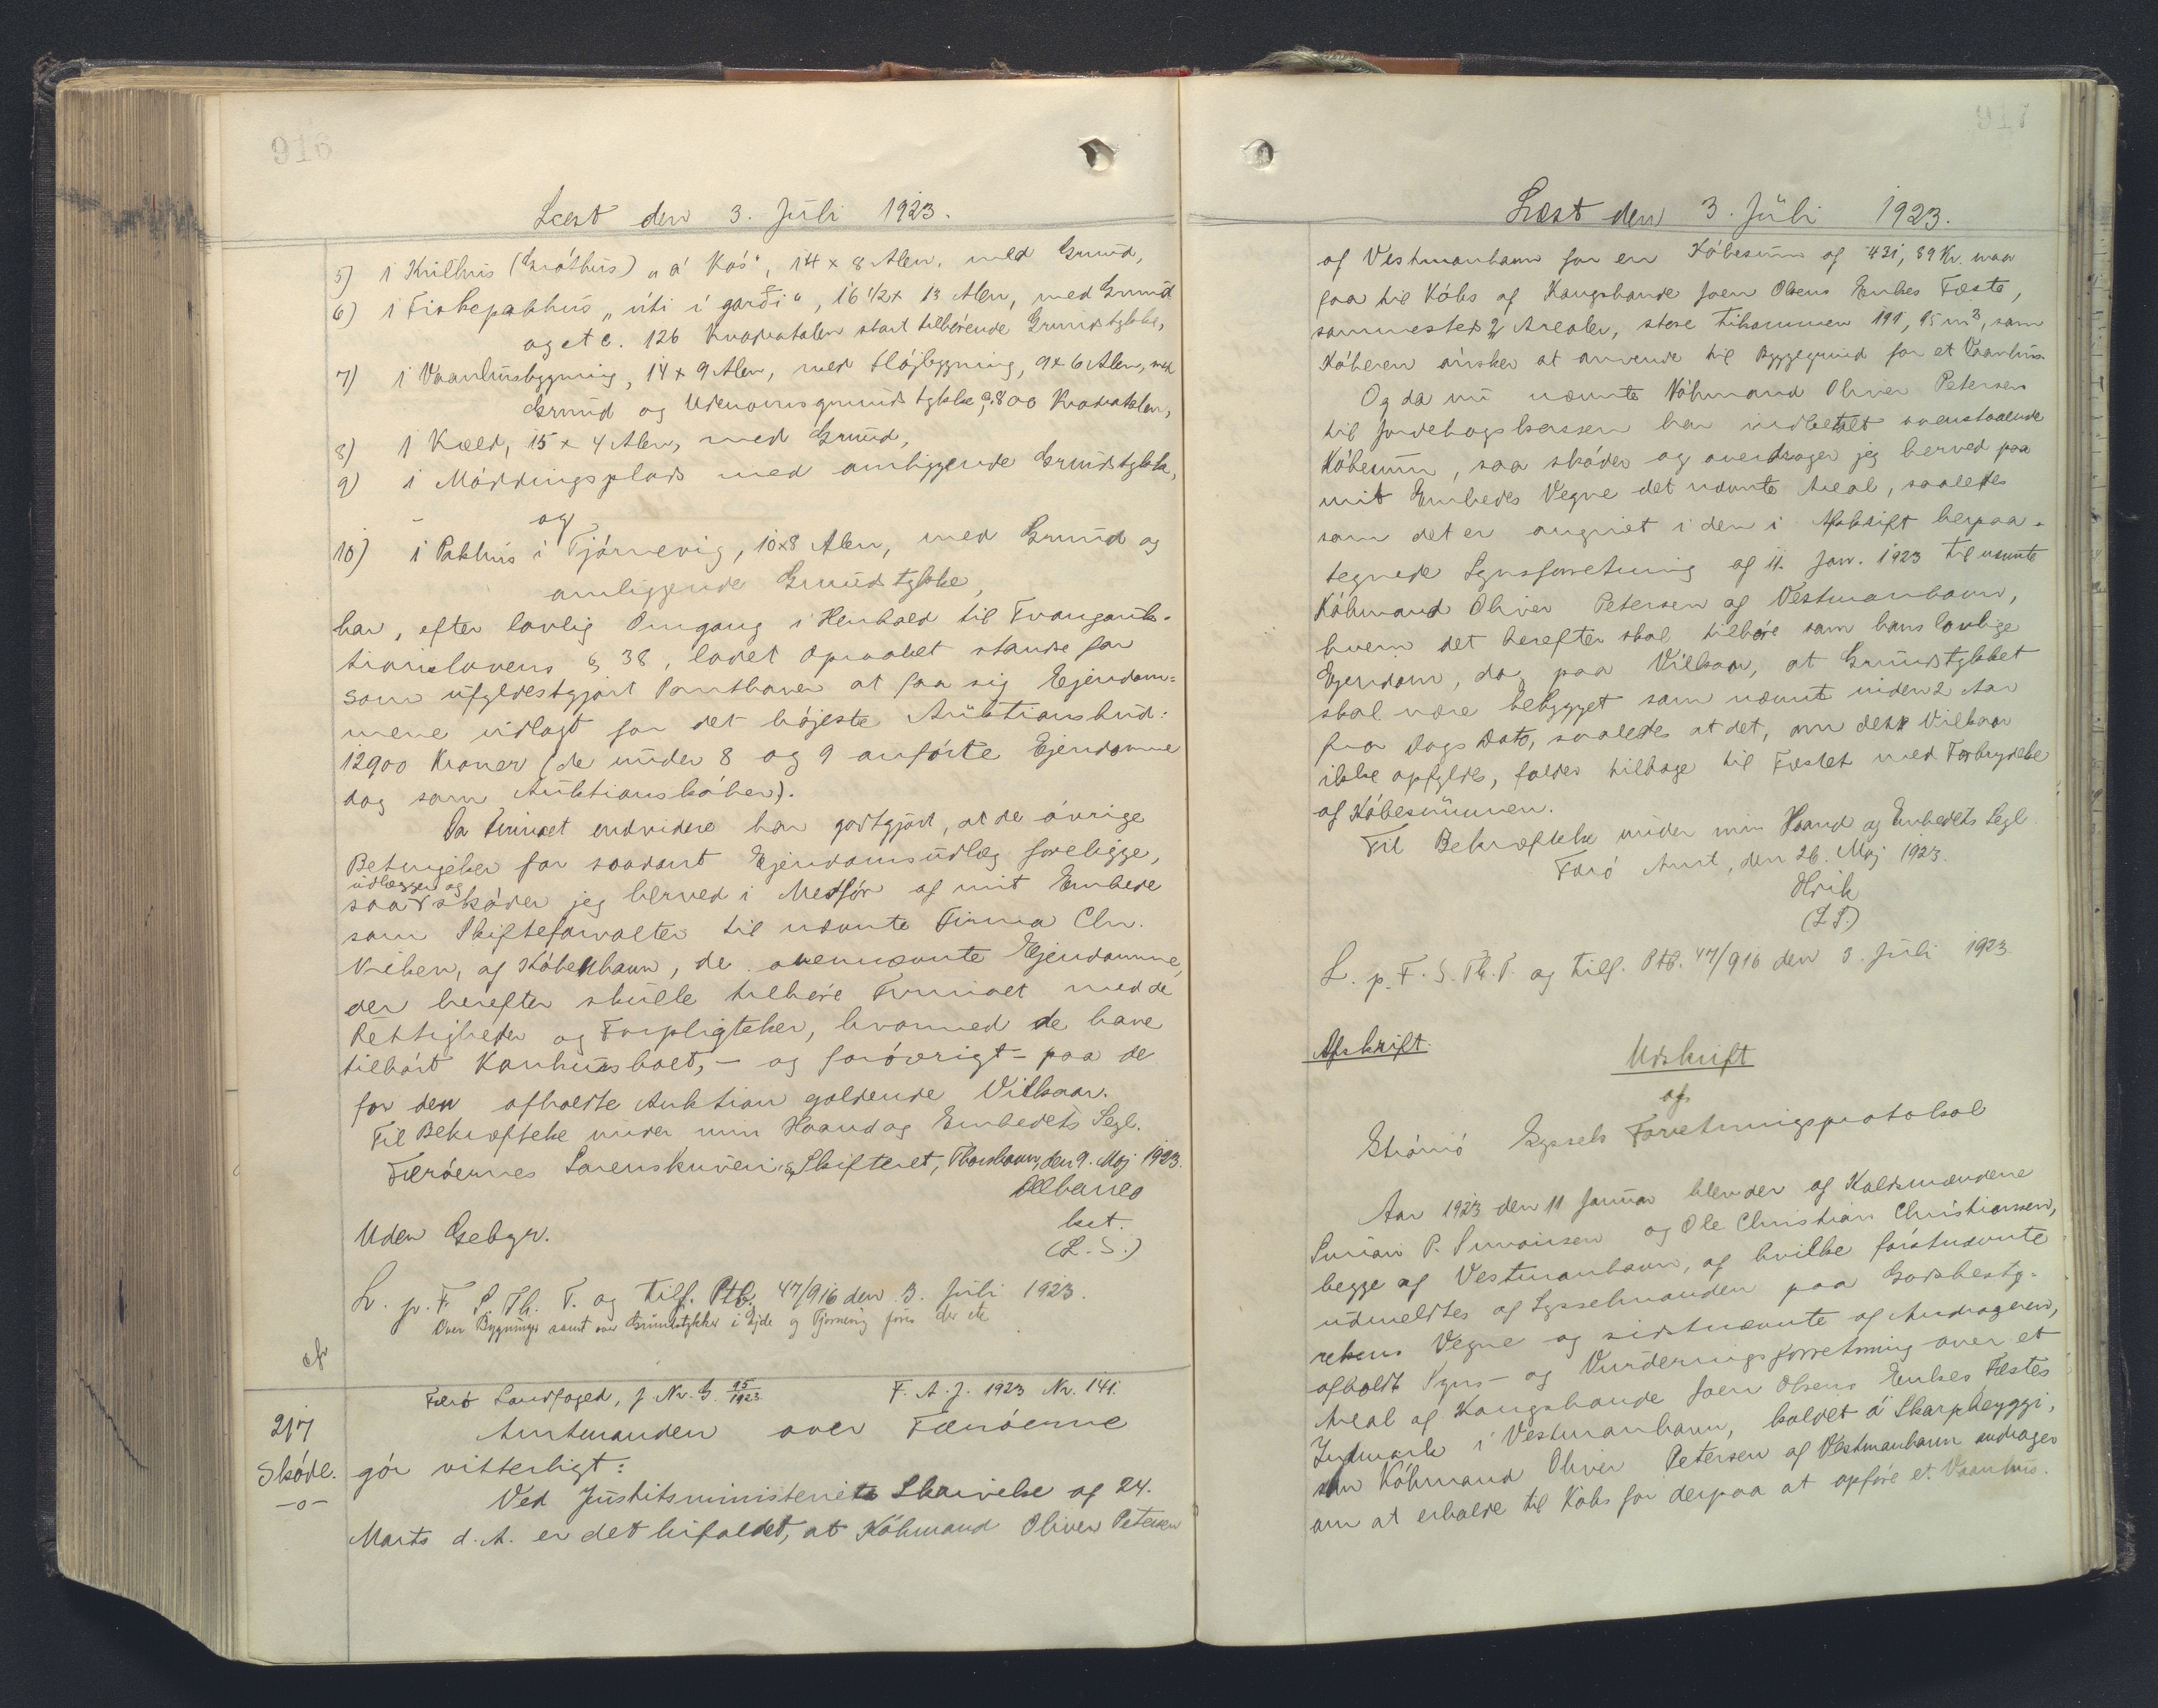 916
Læst den 3. Juli 1923.
5) 1 Krithus (Gróthús) "á Kós", 14 x 8 Alen, med Grund,
6) 1 Fiskepakhus "úti í garði", 16 1/2 x 13 Alen, med Grund
og et c. 126 Kvadratalen stort tilhörende Grundstykke,
7) 1 Vaanhusbygning, 14 x 9 Alen, med Flöjbygning, 9 x 6 Alen, med
Grund og Udenomsgrundstykke, c. 800 Kvadratalen,
8) 1 Kæld, 15 x 4 Alen, med Grund,
9) 1 Möddingsplads med omliggende Grundstykke,
og
10) 1 Pakhus i Tjörnevig, 10x8 Alen, med Grund og
omliggende Grundstykke,
har, efter lovlig Omgang i Henhold til Tvangauk-
tionslovens § 38, ladet Opraabet stande for
som ufyldestgjort Panthaver at faa sig Ejendom-
mene udlagt for det höjeste Auktionsbud:
12900 Kroner (de under 8 og 9 anförte Ejendomme
dog som Auktionsköber).
Da Firmaet endvidere har godtgjort, at de övrige
Betingelser for saadant Ejendomsudlæg foreligge,
udlægger og
saa skøder jeg herved i Medför af mit Embede
som Skifteforvalter til nævnte Firma Chr.
Nielsen, af København, de ovennævnte Ejendomme,
der herefter skulle tilhøre Firmaet med de
Rettigheder og Forpligtelser, hvormed de have
tilhört Konkursboet, - og forövrigt - paa de
for den afholdte Auktion gældende Vilkaar.
Til Bekræftelse under min Haand og Embedets Segl.
Færöernes Sorenskriveri og Skifteret, Thorshavn, den 9. Maj 1923.
kst.
Uden Gebyr.
(L.S.)
L. p. F. S. Th. T. og Tilf. Ptb. 47/916 den 3. Juli 1923.
Over Bygninger samt over Grundstykker i Ejde og Tjörnevig
Færö Landfoged, J. Nr. G. 95/1923
F. A. J. 1923 Nr. 141.
217
Skøde.
-o-
Amtmanden over Færöerne
gör vitterligt:
Ved Justitsministeriets Skrivelse af 24.
Marts d. A. er det bifaldet, at Köbmand Oliver Petersen
917
Læst den 3. Juli 1923.
af Vestmanhavn for en Köbesum af 431,89 Kr. maa
faa til Köbs af Kongsbonde Joen Olsens Enkes Fæste,
sammesteds 2 Arealer, store tilsammen 191,95 m², som
Köberen ønsker at anvende til Byggegrund for et Vaanhus.
Og da nu nævnte Köbmand Oliver Petersen
til Jordebogskassen har indbetalt ovenstaaende
Köbesum, saa skøder og overdrager jeg herved paa
mit Embedes Vegne det nævnte Areal, saaledes
som det er angivet i den i Afskrift herpaa-
tegnede Synsforretning af 11. Jan. 1923 til nævnte
Köbmand Oliver Petersen af Vestmanhavn,
hvem det herefter skal tilhøre som hans lovlige
Ejendom, dog paa Vilkaar, at Grundstykket
skal være bebygget som nævnt inden 2 Aar
fra Dags Dato, saaledes at det, om dette Vilkaar
ikke opfyldes, falder tilbage til Fæstet med Forbrydelse
af Köbesummen.
Til Bekræftelse under min Haand og Embedets Segl.
Færö Amt, den 26. Maj 1923.
(L.S.)
L. p. F. S. Th. T. og Tilf. Ptb. 47/916 den 3. Juli 1923.
Afskrift.
Udskrift
af
Strömö Syssels Forretningsprotokol
Aar 1923 den 11 Januar blev der af Kaldsmændene
og Ole Christian Christiansen,
begge af Vestmanhavn, af hvilke förstnævnte
udmeldtes af Sysselmanden paa Godsbesty-
relsens Vegne og sidstnævnte af Andrageren,
afholdt Syns- og Vurderingsforretning over et
Areal af Kongsbonde Joen Olsens Enkes Fæstes
Indmark i Vestmanhavn, kaldet á Skarpheyggi,
som Köbmand Oliver Petersen af Vestmanhavn andrager
om at erholde til Köbs for derpaa at opföre et Vaanhus.